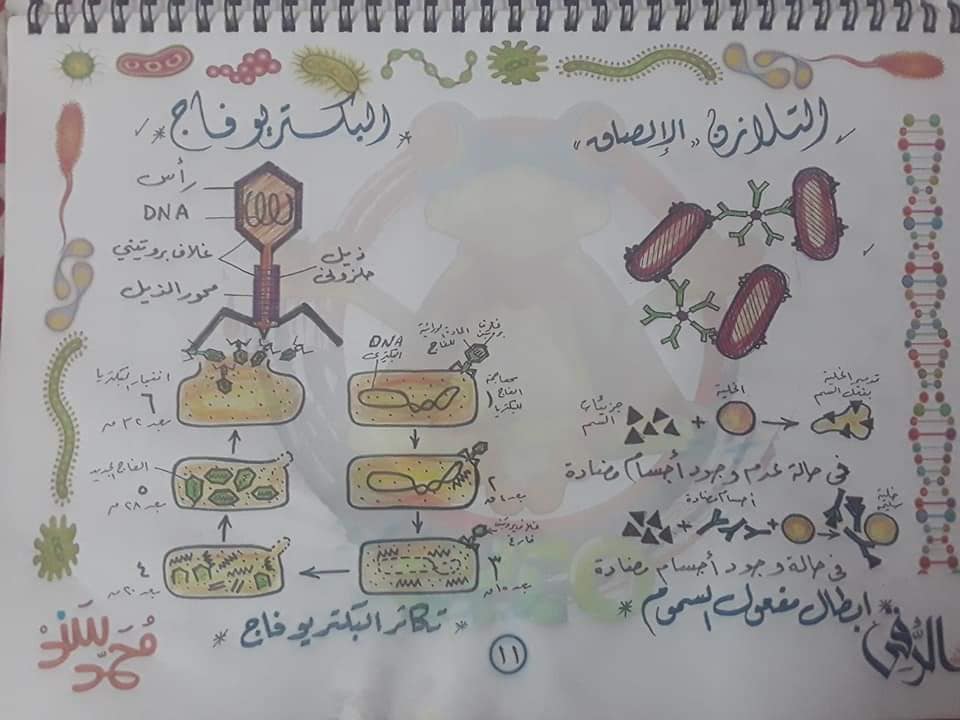 التلازن "الإلصاق"
جزيئات السم
الخلية
تدمير الخلية بفعل السم
في حالة عدم وجود أجسام مضادة
أجسام مضادة
خلية سليمة
في حالة وجود أجسام مضادة
* ابطال مفعول السموم
* البكتريوفاج *
رأس
DNA
غلاف بروتيني
محور الذيل
ذيل
حلزونى
DNA
البكتيرى
المادة الوراثية
للفاج
مهاجمة
الفاج
للبكتريا
١
٢
بعد ١ ق
غلاف بروتينى
فارغ
٣
بعد ١٠ ق
٤
بعد ٢٠ ق
الفاج الجديد
٥
بعد ٢٨ ق
انفجار البكتريا
٦
بعد ٣٢ ق
* تكاثر البكتريوفاج *
محمد سند
١١